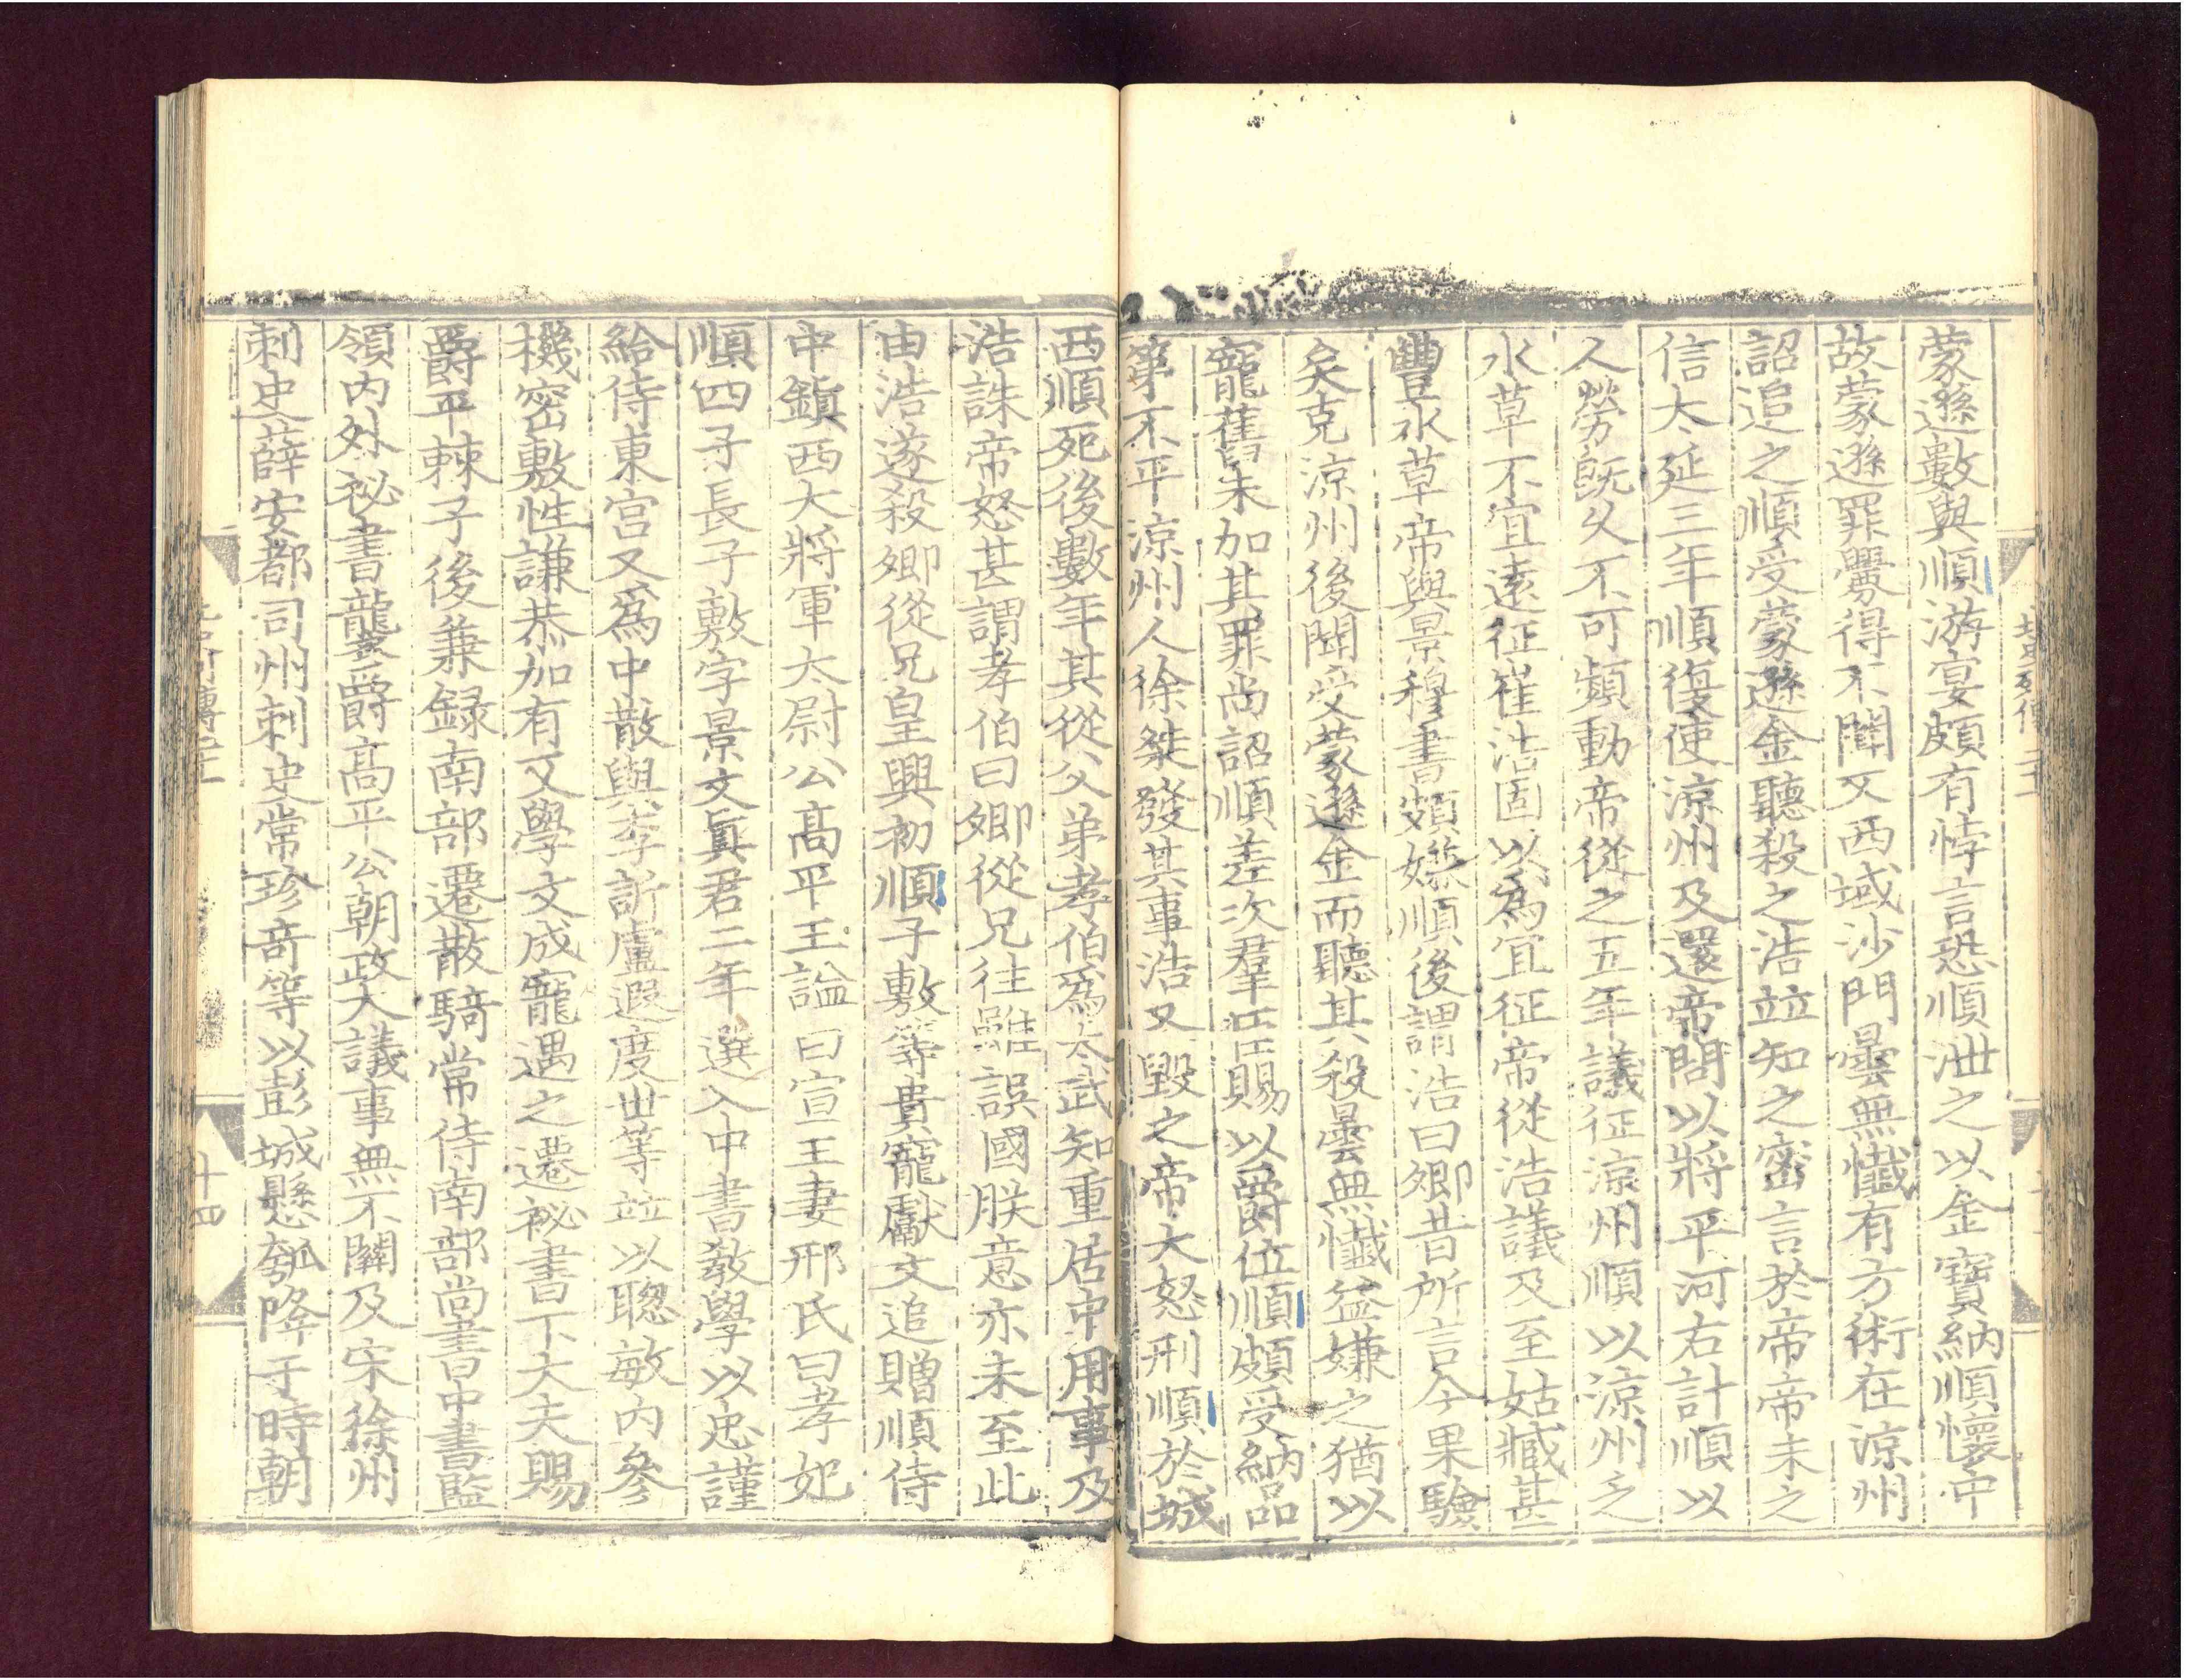 蒙遜數與順游宴頗有悖言恐順泄之以金寶納順懷中
故蒙遜罪釁得不聞又西域沙門曇無懺有方術在涼州
詔追之順受蒙遜金聽殺之浩竝知之密言於帝帝未之
信太延三年順復使涼州及還帝問以將平河右計順以
人勞既久不可頻動帝從之五年議征涼州順以涼州乏
水草不宜遠征崔浩固以爲宜征帝從浩議及至姑臧甚
豐水草帝與景穆書頗嫌順後謂浩曰卿昔所言今果驗
矣克涼州後聞受蒙遜金而聽其殺曇無懺益嫌之猶以
寵舊未加其罪尚詔順差次羣臣賜以爵位順頗受納品
第不平涼州人徐桀發其事浩又毀之帝大怒刑順於城
西順死後數年其從父弟孝伯爲太武知重居中用事及
浩誅帝怒甚謂孝伯曰卿從兄往雖誤國朕意亦未至此
由浩遂殺卿從兄皇興初順子敷等貴寵獻文追贈順侍
中鎮西大將軍太尉公高平王謚曰宣王妻邢氏曰孝妃
順四子長子敷字景文眞君二年選入中書敎學以忠謹
給侍東宮又爲中散與李訢盧遐度世等竝以聰敏內參
機密敷性謙恭加有文學文成寵遇之遷祕書下大夫賜
爵平棘子後兼錄南部遷散騎常侍南部尚書中書監
領內外祕書襲爵高平公朝政大議事無不關及宋徐州
刺史薛安都司州刺史常珍奇等以彭城懸瓠降于時朝
十四